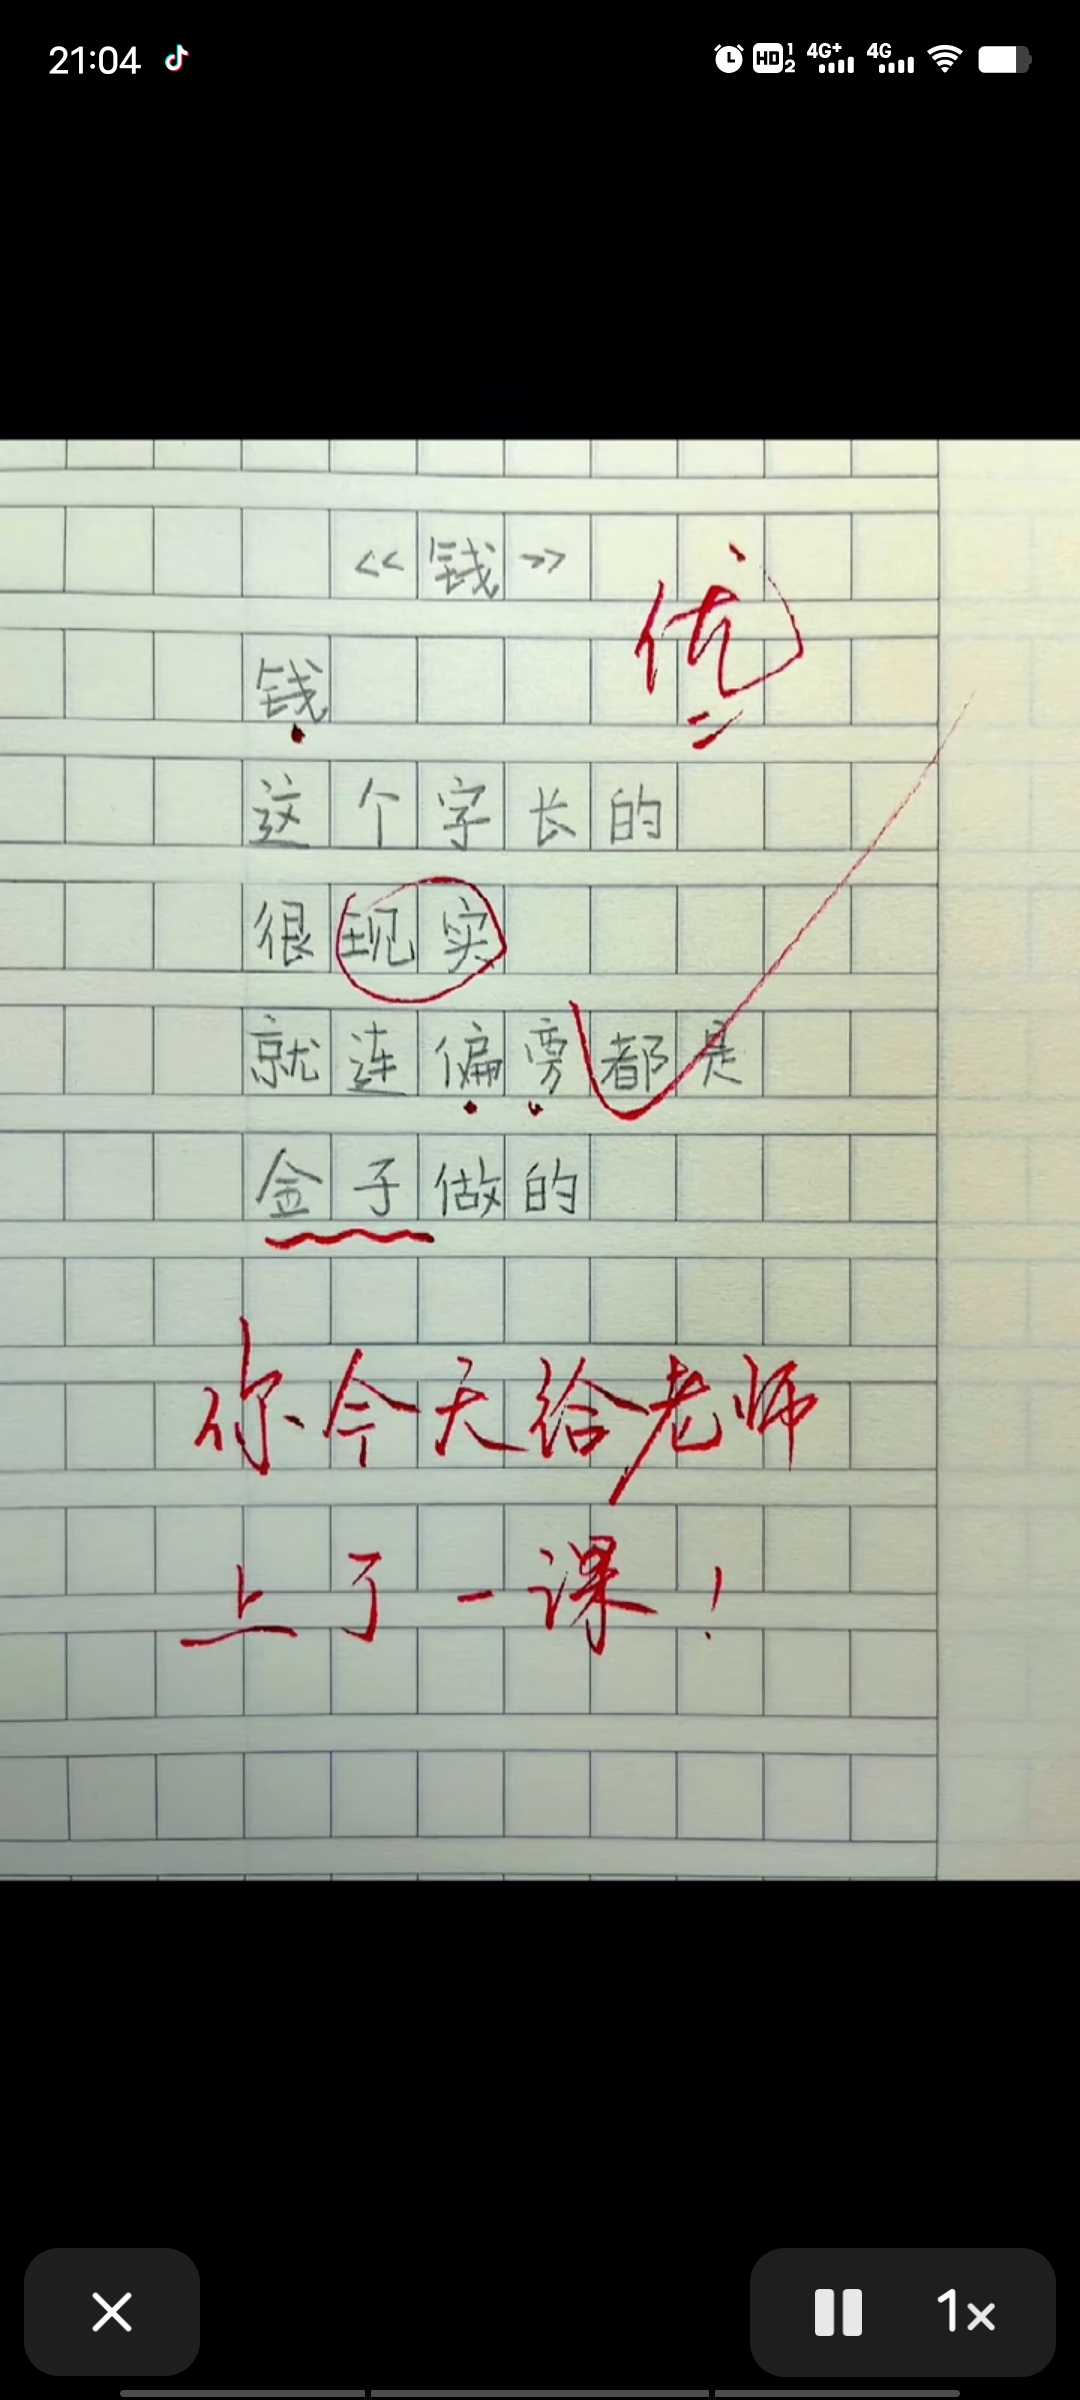 21:04
HD 1 2 4G+ 4G
<<钱>>
优
钱
这个字长的
很现实
就连偏旁都是
金子做的
你今天给老师
上了一课!
1x